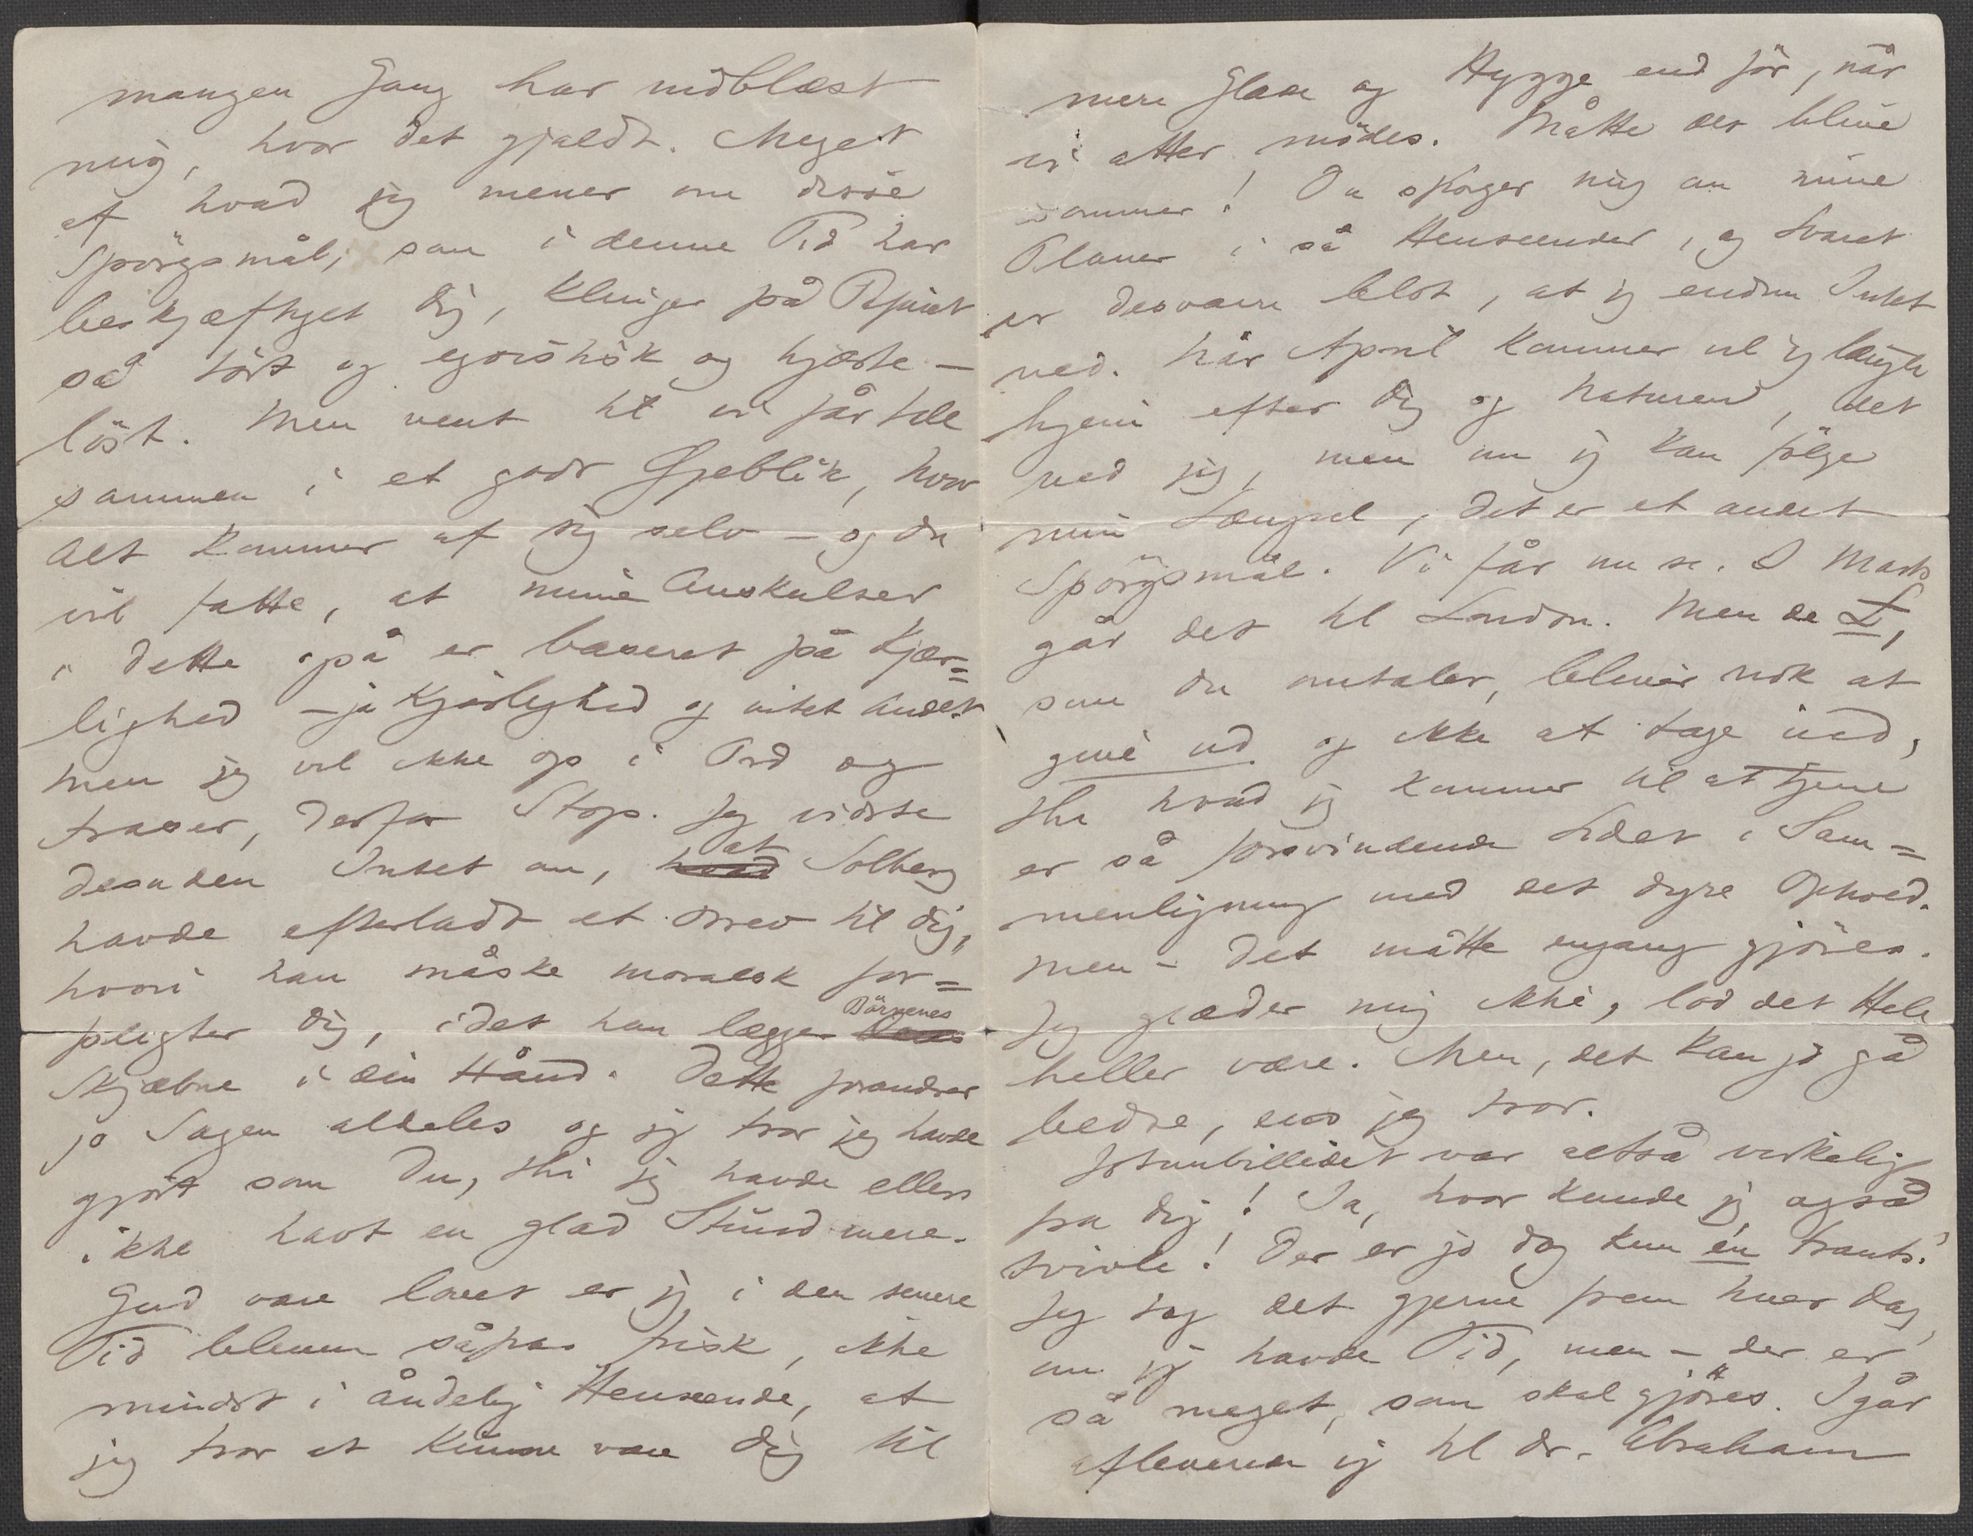 mangen Gang har indblæst
mig, hvor det gjaldt. Meget
af hvad jeg mener om disse
Spörgsmål, som i denne Tid har
beskjæftiget dig, klinger på Papiret
så tört og egoistisk og hjerte-
löst. Men vent til vi får tale
sammen i et godt Øjeblik, hvor
Alt kommer af sig selv – og du
vil fatte, at mine Anskuelser
i dette også er baseret på Kjær=
lighed – ja Kjærlighed og intet Andet
men jeg vil ikke op i Ord og
fraser, derfor Stop. Jeg vidste
desuden Intet om, hvad at Solberg
havde efterladt et Brev til dig,
hvori han måske moralsk for=
pligter dig, idet han lægger Börnenes
Skjæbne i din Hånd. Dette forandrer
jo Sagen aldeles og jeg tror jeg havde
gjort som Du, thi jeg havde ellers
ikke havt en glad Stund mere.
Gud være lovet er jeg i den senere
Tid bleven såpas frisk, ikke
mindst i åndelig Henseende, at
jeg tror at kunne være dig til
mere Glæde og Hygge end för, når
vi atter mödes. Måtte det blive
sommer! Du spörger mig om mine
Planer i så Henseender, og Svaret
er desværre blot, at jeg endnu Intet
ved. Når April kommer vil jeg længte
hjem efter dig og Naturen, det
ved jeg, men om jeg kan fölge
min Længsel, det er et andet
Spörgsmål. Vi får nu se. I Marts
går det til London. Men de £,
som du omtaler, bliver nok at
give ud og ikke at tage ind,
thi hvad jeg kommer til at tjene
er så forsvindende Lidet i Sam=
menligning med det dyre Ophold.
Men – det måtte engang gjöres.
Jeg glæder mig ikke, lod det Hele
heller være. Men, det kan jo gå
bedre, end jeg tror.
Jotunbilledet var altså virkelig
fra dig! Ja, hvor kunde jeg også
tvivle! Der er jo dog kun én Frants!
Jeg tog det gjerne frem hver Dag,
om jeg havde Tid, men – der er
så meget, som skal gjöres. Igår
afleverede jeg til dr. Abraham